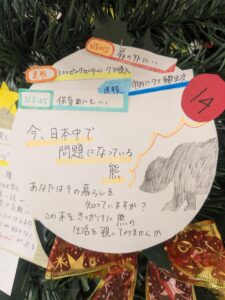 NEWS
速報 ショッピングセンターに クマ侵入
速報
NEWS 保育園にも…
14
今、日本中で
問題になっている
熊
あなたは熊の暮らしを
知っていますか?
この本をきっかけに 熊の
生活を覗いてみませんか